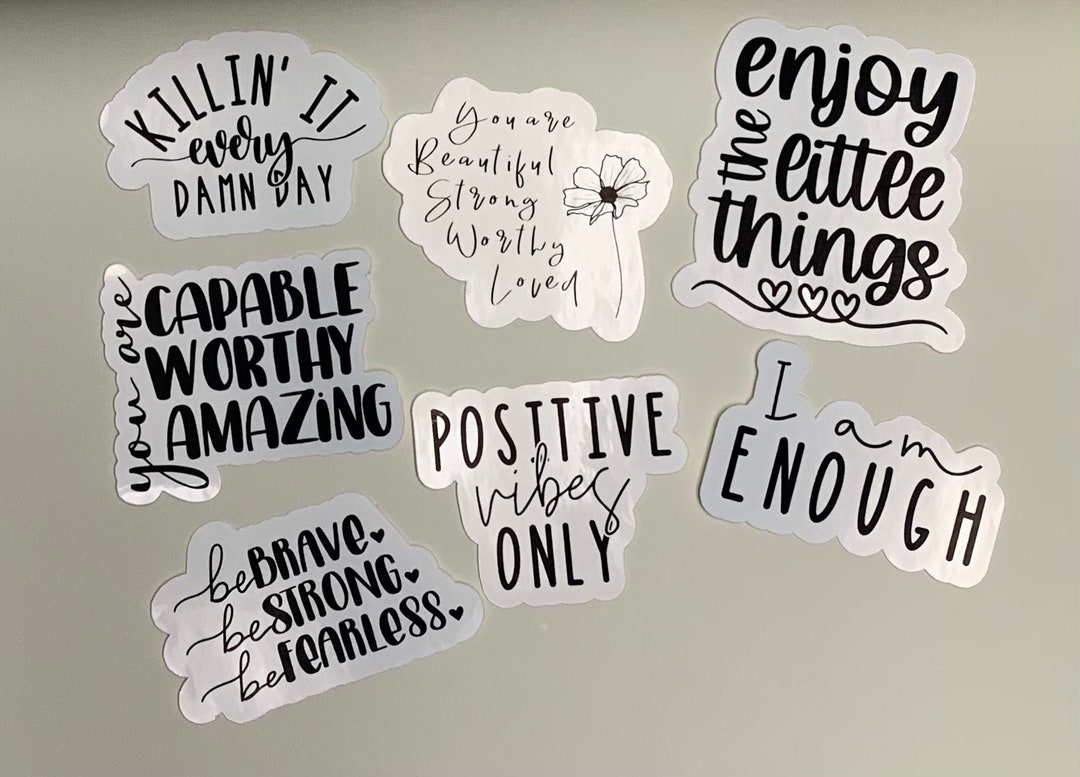 KILLIN' IT
every
DAMN DAY
You are
Beautiful
Strong
Worthy
Loved
enjoy
the little
things
you are
CAPABLE
WORTHY
AMAZiNG
POSITIVE
vibes
ONLY
I am
ENOUGH
be BRAVE.
be STRONG.
be FEARLESS.